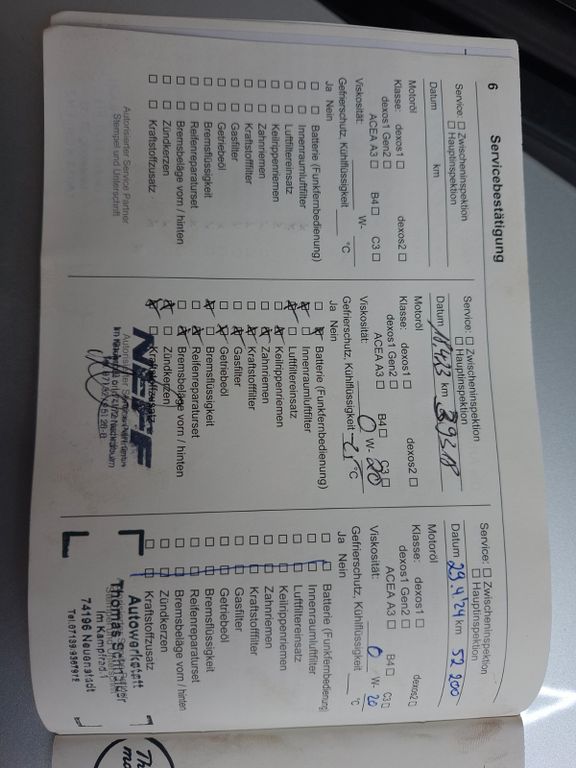 6 Servicebestätigung
Service: ☐ Zwischeninspektion
☐ Hauptinspektion
Datum km
Motoröl
Klasse: dexos1 ☐ dexos2 ☐
dexos1 Gen2 ☐
ACEA A3 ☐ B4 ☐ C3 ☐
Viskosität: W-
Gefrierschutz, Kühlflüssigkeit °C
Ja Nein
☐ ☐ Batterie (Funkfernbedienung)
☐ ☐ Innenraumluftfilter
☐ ☐ Luftfiltereinsatz
☐ ☐ Keilrippenriemen
☐ ☐ Zahnriemen
☐ ☐ Kraftstofffilter
☐ ☐ Gasfilter
☐ ☐ Getriebeöl
☐ ☐ Bremsflüssigkeit
☐ ☐ Reifenreparaturset
☐ ☐ Bremsbeläge vorn / hinten
☐ ☐ Zündkerzen
☐ ☐ Kraftstoffzusatz
Autorisierter Service Partner
Stempel und Unterschrift
Service: ☐ Zwischeninspektion
☐ Hauptinspektion
Datum km
Motoröl
Klasse: dexos1 ☐ dexos2 ☐
dexos1 Gen2 ☐
ACEA A3 ☐ B4 ☐ C3 ☐
Viskosität: 0 W- 20
Gefrierschutz, Kühlflüssigkeit °C
Ja Nein
Batterie (Funkfernbedienung)
Innenraumluftfilter
Luftfiltereinsatz
Keilrippenriemen
Zahnriemen
Kraftstofffilter
Gasfilter
Getriebeöl
Bremsflüssigkeit
Reifenreparaturset
Bremsbeläge vorn / hinten
Zündkerzen
Service: ☐ Zwischeninspektion
☐ Hauptinspektion
Datum 29.4.'24 km 52 200
Motoröl
Klasse: dexos1 ☐ dexos2 ☐
dexos1 Gen2 ☐
ACEA A3 ☐ B4 ☐ C3 ☐
Viskosität: 0 W- 20
Gefrierschutz, Kühlflüssigkeit °C
Ja Nein
☐ ☐ Batterie (Funkfernbedienung)
☐ ☐ Innenraumluftfilter
☐ ☐ Luftfiltereinsatz
☐ ☐ Keilrippenriemen
☐ ☐ Zahnriemen
☐ ☐ Kraftstofffilter
☐ ☐ Gasfilter
☐ ☐ Getriebeöl
☐ ☐ Bremsflüssigkeit
☐ ☐ Reifenreparaturset
☐ ☐ Bremsbeläge vorn / hinten
☐ ☐ Zündkerzen
☐ ☐ Kraftstoffzusatz
Autowerkstatt
Thomas
Im Kampfrad 1
74196 Neuenstadt